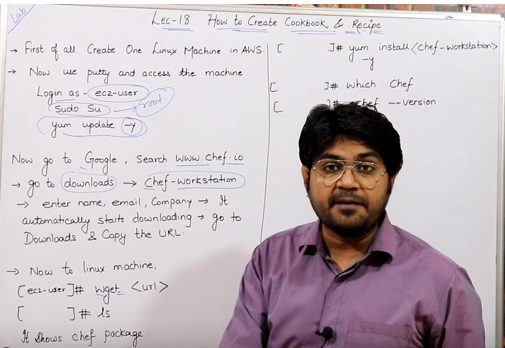 Lab
Lec-18 How to Create Cookbook & Recipe
→ First of all Create One Linux Machine in AWS
→ Now use putty and access the machine
Login as - ec2-user
Sudo Su root
yum update -y
Now go to Google, Search www.Chef.io
→ go to downloads → Chef-workstation
→ enter name, email, Company → It
automatically starts downloading → go to
Downloads & Copy the URL.
→ Now to linux machine.
[ec2-user]# wget <url>
[ ]# ls
It shows chef package
[ ]# yum install <chef-workstation>
-y
[ ]# which Chef
[ ]# chef --version